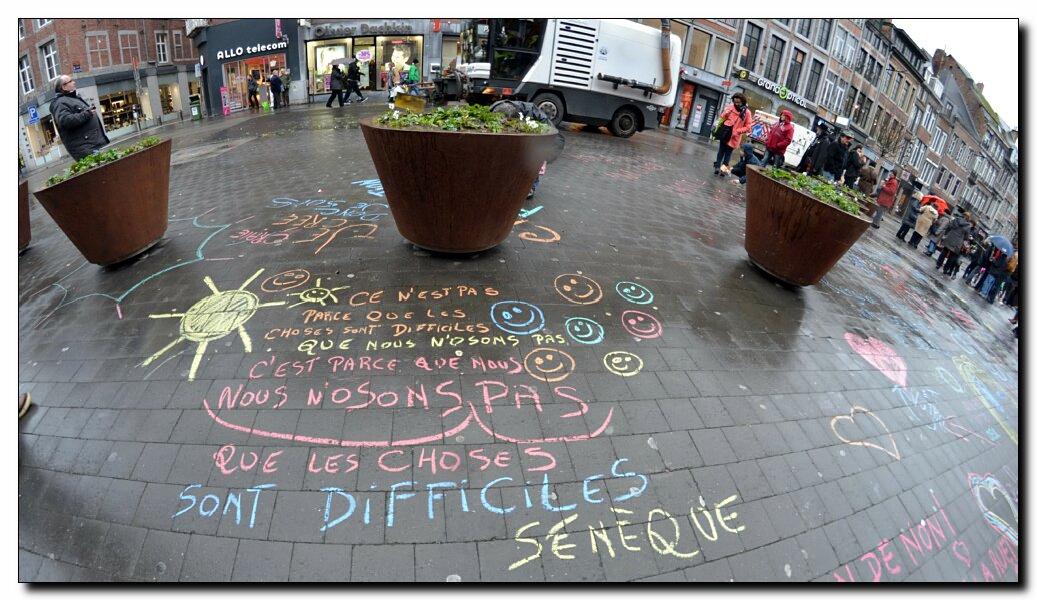 ALLO telecom
Olivier Dachkin
GrandOptical
P
CE N'EST PAS
PARCE QUE LES
CHOSES SONT DIFFICILES
QUE NOUS N'OSONS PAS
C'EST PARCE QUE NOUS
NOUS N'OSONS PAS
QUE LES CHOSES
SONT DIFFICILES
SÉNÈQUE
DE NONI